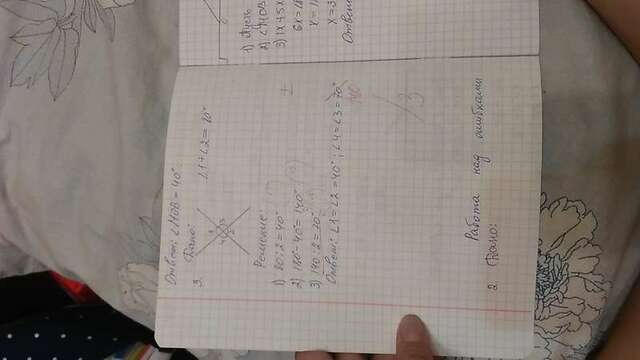 Ответ: ∠МОВ = 40°.
Дано:
3. ∠1+∠2 = 80°
1
4 3
2
Решение:
1) 80:2=40°
2) 180-40=140°
3) 140:2=70°
±
Ответ: ∠1=∠2=40°; ∠4=∠3=70°
140°
3
Работа над ошибками
2. Дано:
1) Пусть
2) ∠МОВ
3) 1х+5х
6х=18
х=1
х=3
Ответ